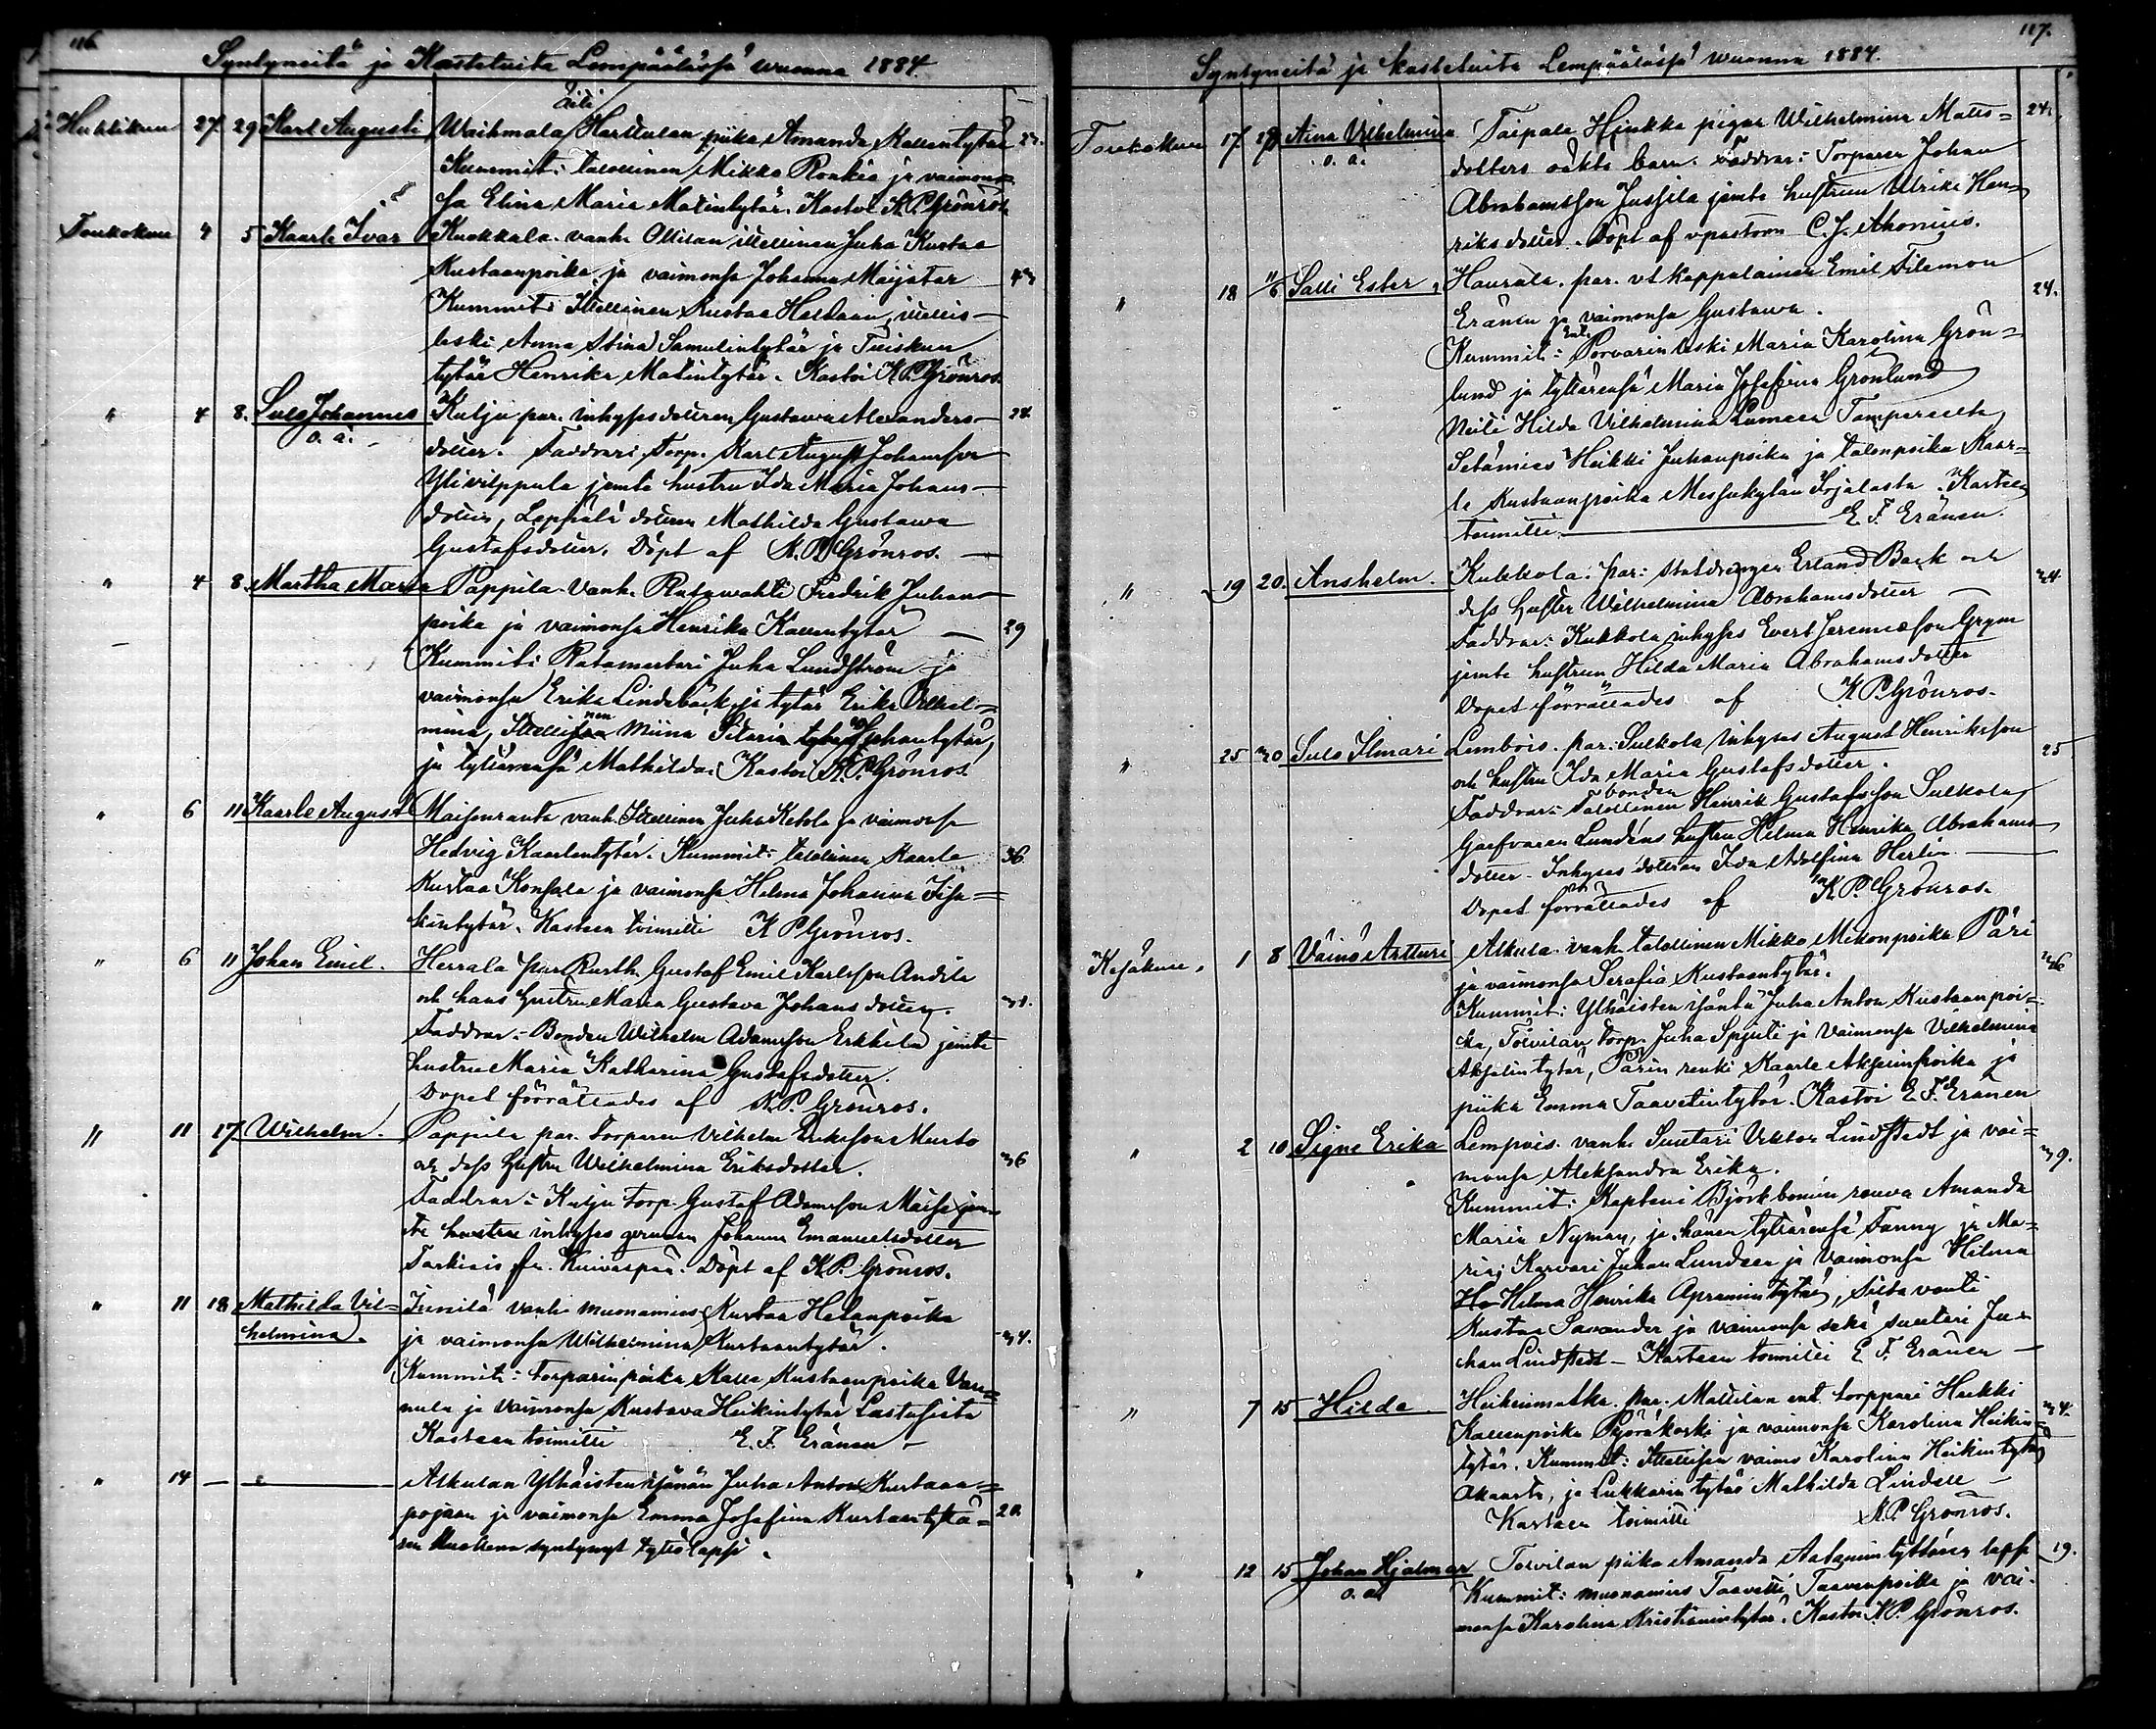 116.
Syntyneitä ja Kastetuita Lempäälässä wuonna 1884.
Huhtikuu 27. 29 Karl Augusti Waihmala Äiti Harttulan piika Amanda Kallentytär 27.
Kummit: talollinen Mikko Ronkia ja vaimon
sa Elina Maria Matintytär. Kastoi K.P. Grönros
Toukokuu 4 5 Kaarle Ivar Kuokkala. vanh. Ollilan itellinen Juha Kustaa
Kustaanpoika ja vaimonsa Johanna Maijatar
Kummit: Itellinen Kustaa , itellis-
leski Anna Stina Samulintytär ja
tytär Henrika Matintytär. Kastoi K.P. Grönros.
" 4 8. Sulo Johannes Kulju par. inhysesdottren Gustava Alexanders- 24.
o. ä. dotter. Faddrar: Torp. Karl August Johansson
Ylivilppula jemte hustru Ida Maria Johans-
dotter, dottren Mathilda Gustava
Gustafsdotter. Döpt af K.P. Grönros.
" 4 8. Martha Maria Pappila. Vanh. Ratavahti Fredrik Juhan
poika ja vaimonsa Henrika Kallentytär 29
Kummit: Ratamestari Juha Lundström ja
vaimonsa Erika Lindebäck, ja tytär Erika Vilhel-
mina, Itellinen Miina Juhantytär,
ja tyttärensä Mathilda. Kastoi K.P. Grönros.
" 6 11 Kaarle August Maisenranta vanh. Itellinen Juha Ketola ja vaimonsa
Hedvig Kaarlentytär. Kummit: talollinen Kaarle 36.
Kustaa Konsala ja vaimonsa Helena Johanna Iisa-
kintytär. Kasteen toimitti K P Grönros.
" 6 11 Johan Emil. Herrala par. Rusth. Gustaf Emil Karlsson Andila
och hans hustru Maria Gustava Johansdotter.
Faddrar: Bonden Wilhelm Adamsson Erkkilä jemte
hustru Maria Katharina Gustafsdotter.
Dopet förrättades af K.P. Grönros.
" 11 17. Wilhelm. Pappila par. Torparen Vilhelm Eriksson Murto
och dess hustru Wilhelmina Eriksdotter.
Faddrar: Kulju torp. Gustaf Adamsson Maisi jem-
te hustru inhyses Johanna Emanuelsdotter
Döpt af K.P. Grönros.
" 11 18 Mathilda Vil- Innilä vanh. muonamies Kustaa Heikinpoika
helmina. ja vaimonsa Wilhelmina Kustaantytär.
Kummit: torparinpoika Kalle Kustaanpoika Van-
nula ja vaimonsa Kustava Heikintytär
Kasteen toimitti E. F. Eränen
" 14 — — Alkulan Ylhäisten isännän Juha Anton Kustaan-
pojan ja vaimonsa Emma Josefina Kustaantytä- 20.
ren kuollena syntynyt tyttölapsi.
117.
Syntyneitä ja Kastetuita Lempäälässä wuonna 1884.
Toukokuu 17. Aina Vilhelmina Taipale Hjukka pigan Wilhelmina Matts- 24.
o. ä. dotters oäkta barn. Faddrar: Torparen Johan
Abrahamsson Jussila jemte hustrun Ulrika Hen-
riksdotter. Döpt af vpastorn C. J. Ahonius.
" 18 11/6 Salli Ester, Haurala. par. vt kappalainen Emil Filemon 24.
Eränen ja vaimonsa Gustawa.
Kummit: Ent. Porvarin leski Maria Karolina Grön-
lund ja tyttärensä Maria Josefina Grönlund
Neiti Hilda Vilhelmina Lumeen Tampereelta,
Setämies Heikki Juhanpoika ja talonpoika Kaar-
le Kustaanpoika Messukylän Sojalasta. Kasteen
toimitti E. F. Eränen.
" 19 20. Anshelm. Kukkola. par: Staldrängen Erland Back och
dess hustru Wilhelmina Abrahamsdotter
Faddrar: Kukkola inhyses Evert Jeremiasson Grym
jemte hustrun Hilda Maria Abrahamsdotter
Dopet förrättades af K.P. Grönros.
" 25 Sulo Ilmari Lembois. par: Sulkola Inhyses August Henriksson 25
och hustru Ida Maria Gustafsdotter.
Faddrar: Talollinen bonden Henrik Gustafsson Sulkola,
Garfvaren Lundéns hustru Hilma Henrika Abrahams
dotter. Inhyses dottren Ida Adolfina Herlin
Dopet förrättades af K.P. Grönros.
Kesäkuu. 1 8 Väinö Artturi Alkula. vanh. talollinen Mikko Mikonpoika Päri
ja vaimonsa Serafia Kustaantytär.
Kummit: Ylhäisten isäntä Juha Anton Kustaanpoi-
ka, Toivilan torp. Juha Spjuti ja vaimonsa Vilhelmina
Akselintytär, Pärin renki Kaarle Akselinpoika ja
piika Emma Taavetintytär. Kastoi E. F. Eränen
" 2 10 Signe Erika Lempois. vanh. Suutari Viktor Lindstedt ja vai-
monsa Aleksandra Erika.
Kummit: Kapteni Björkbomin rouva Amanda
Maria Nyman, ja hänen tyttärensä Fanny ja Ma-
ria; Karvari Juhan Lundeen ja vaimonsa Hilma
Hilma Henrika Apramintytär, Silta vouti
Kustaa Savander ja vaimonsa sekä suutari Ju-
han Lindstedt – Kasteen toimitti E. F. Eränen
" 7 15 Hilda Heikinmatka. par. Mattilan ent. torppari Heikki
Kallenpoika Pyöräkoski ja vaimonsa Karolina Heikin-
tytär. Kummit: Itellisen vaimo Karolina Heikintytär
Akaasta, ja Lukkarin tytär Mathilda Lindell
Kasteen toimitti K.P. Grönros.
" 12 15 Johan Hjalmar Toivilan piika Amanda Aataminttyttären lapsi 19.
o. ä. Kummit: muonamies Taavetti Taavinpoika ja vai-
monsa Karolina Kristianintytär. Kastoi K.P. Grönros.